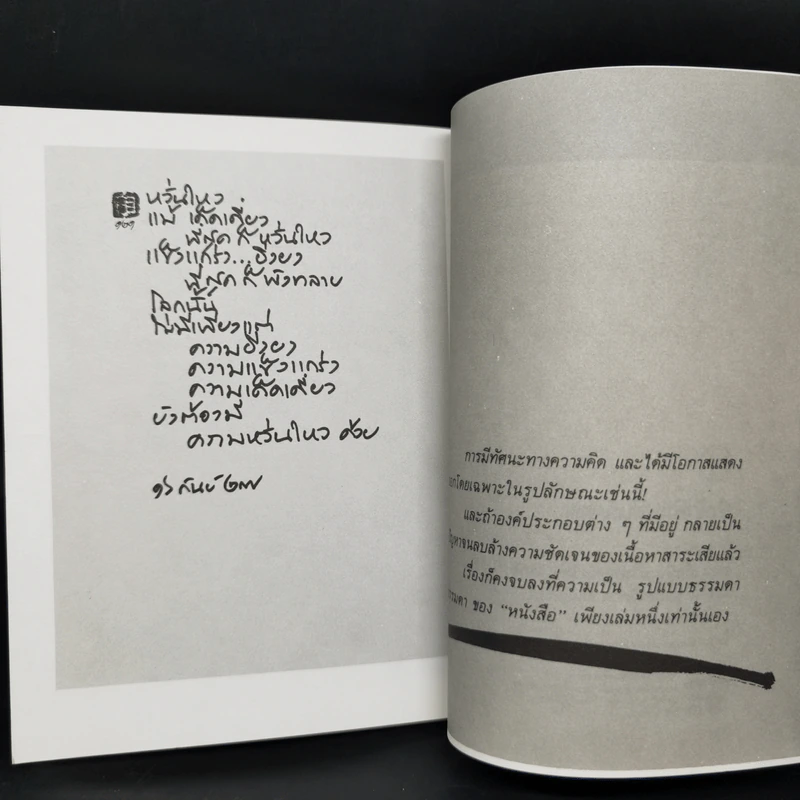 หวั่นไหว
แม้ เด็ดเดี่ยว
ที่สุด ก็ หวั่นไหว
แข็งแกร่ง...ยิ่งยง
ที่สุด ก็ พังทลาย
โลกนี้
ไม่มีเพียงแต่
ความยิ่งยง
ความแข็งแกร่ง
ความเด็ดเดี่ยว
ยังต้องมี
ความหวั่นไหว ด้วย
๑๖ กันย์ ๒๗
การมีทัศนะทางความคิด และได้มีโอกาสแสดง
โดยเฉพาะในรูปลักษณะเช่นนี้!
และถ้าองค์ประกอบต่าง ๆ ที่มีอยู่ กลายเป็น
จนลบล้างความชัดเจนของเนื้อหาสาระเสียแล้ว
เรื่องก็คงจบลงที่ความเป็น รูปแบบธรรมดา
ของ "หนังสือ" เพียงเล่มหนึ่งเท่านั้นเอง